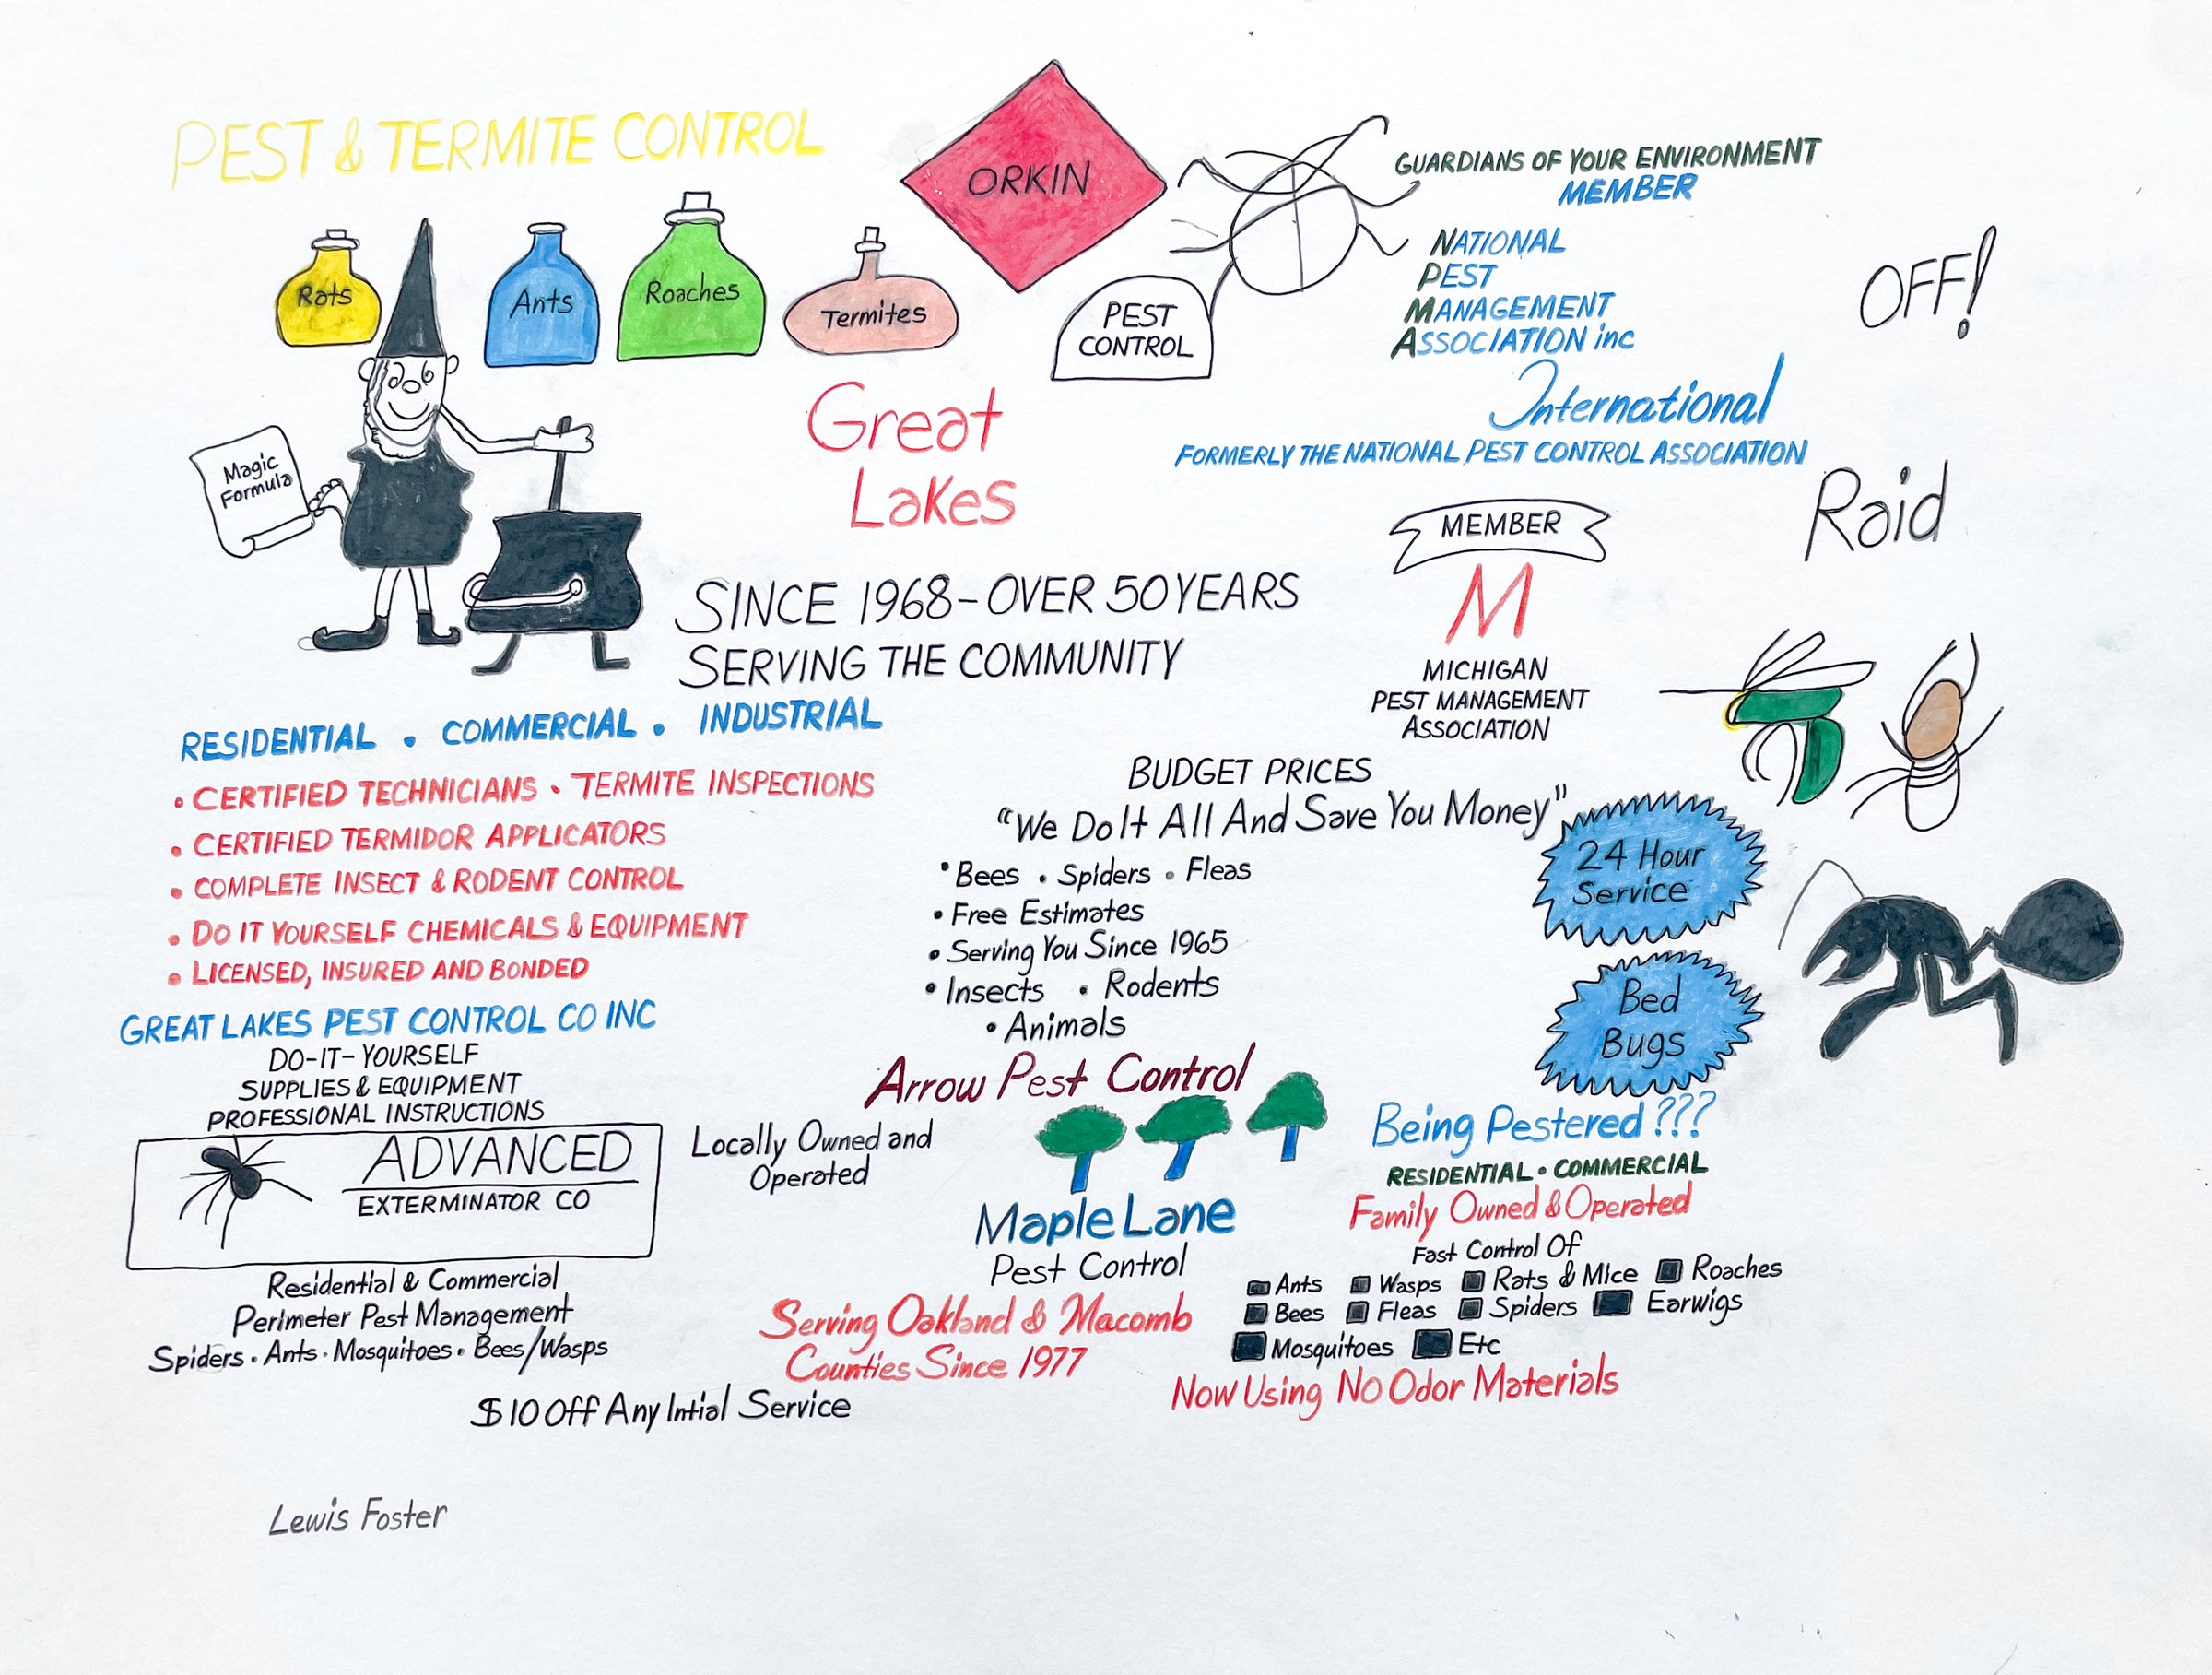 PEST & TERMITE CONTROL
Rats
Ants
Roaches
Termites
Magic
Formula
ORKIN
PEST
CONTROL
GUARDIANS OF YOUR ENVIRONMENT
MEMBER
NATIONAL
PEST
MANAGEMENT
ASSOCIATION inc
International
FORMERLY THE NATIONAL PEST CONTROL ASSOCIATION
OFF!
Raid
Great
Lakes
SINCE 1968-OVER 50 YEARS
SERVING THE COMMUNITY
MEMBER
M
MICHIGAN
PEST MANAGEMENT
ASSOCIATION
RESIDENTIAL . COMMERCIAL . INDUSTRIAL
• CERTIFIED TECHNICIANS • TERMITE INSPECTIONS
• CERTIFIED TERMIDOR APPLICATORS
• COMPLETE INSECT & RODENT CONTROL
• DO IT YOURSELF CHEMICALS & EQUIPMENT
• LICENSED, INSURED AND BONDED
GREAT LAKES PEST CONTROL CO INC
DO-IT-YOURSELF
SUPPLIES & EQUIPMENT
PROFESSIONAL INSTRUCTIONS
ADVANCED
EXTERMINATOR CO
Residential & Commercial
Perimeter Pest Management
Spiders • Ants • Mosquitoes • Bees/Wasps
$10 Off Any Intial Service
BUDGET PRICES
"We Do It All And Save You Money"
• Bees • Spiders • Fleas
• Free Estimates
• Serving You Since 1965
• Insects • Rodents
• Animals
24 Hour
Service
Bed
Bugs
Arrow Pest Control
Locally Owned and
Operated
Maple Lane
Pest Control
Serving Oakland & Macomb
Counties Since 1977
Being Pestered ???
RESIDENTIAL • COMMERCIAL
Family Owned & Operated
Fast Control Of
Ants Wasps Rats & MIce Roaches
Bees Fleas Spiders Earwigs
Mosquitoes Etc
Now Using No Odor Materials
Lewis Foster